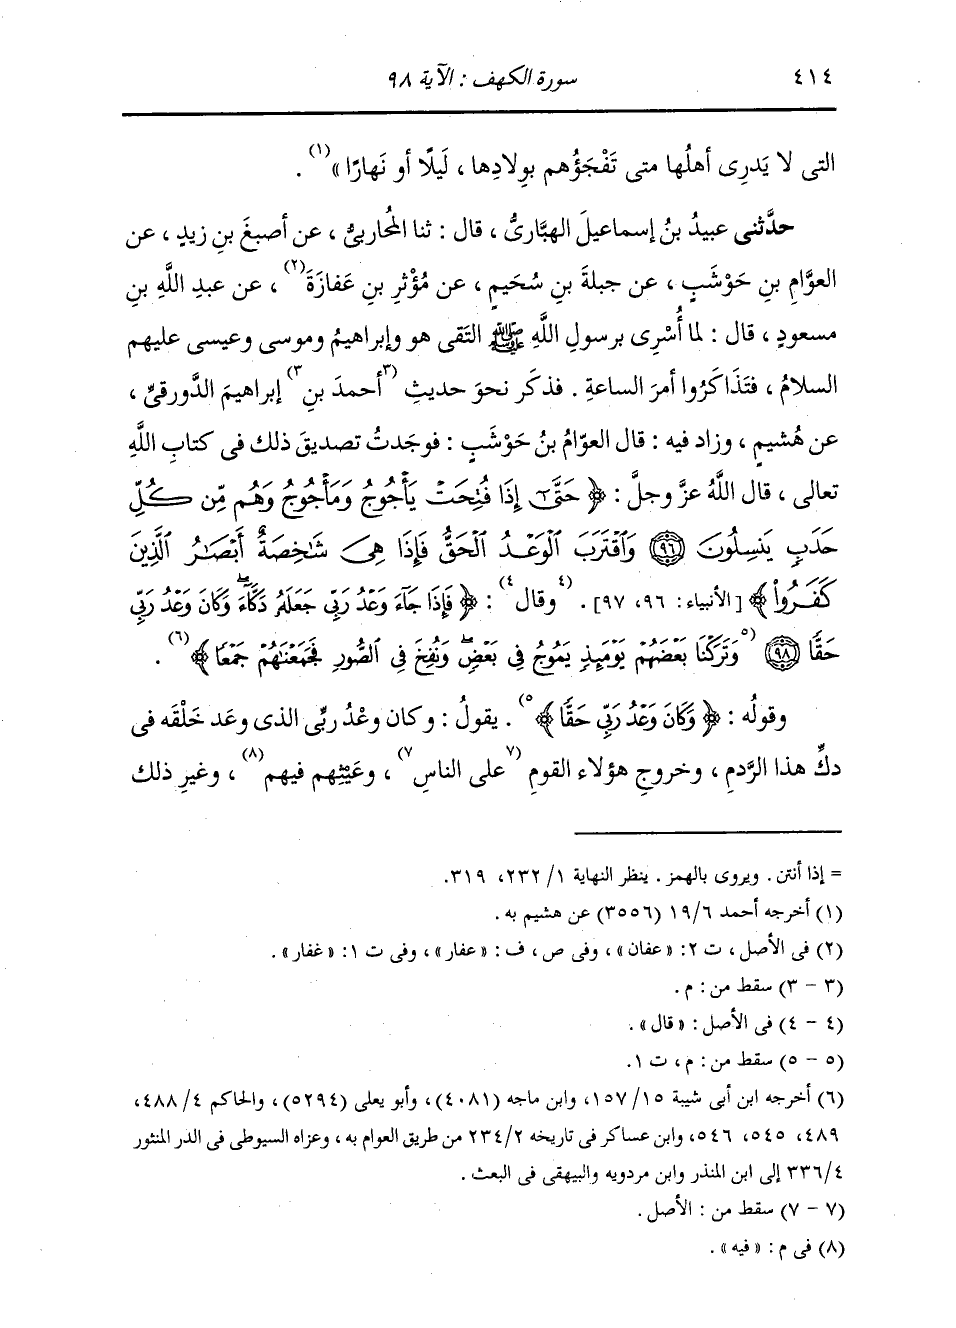 ٤١٤ سورة الكهف : الآية ٩٨
التى لا يَدرِى أهلُها متى تَفْجَؤُهم بوِلادِها ، لَيلًا أو نَهارًا » (١) .
حدَّثنى عبيدُ بنُ إسماعيلَ الهبَّارىُّ ، قال : ثنا المُحاربىُّ ، عن أصبغَ بنِ زيدٍ ، عن
العوَّامِ بنِ حَوْشَبٍ ، عن جبلةَ بنِ سُحَيمٍ ، عن مُؤْثرِ بنِ عَفازَةَ (٢) ، عن عبدِ اللَّهِ بنِ
مسعودٍ ، قال : لما أُسْرِى برسولِ اللَّهِ ﷺ التَقى هو وإبراهيمُ وموسى وعيسى عليهم
السلامُ ، فتَذَاكَرُوا أمرَ الساعةِ . فذكَر نحوَ حديثِ (٣) أحمدَ بنِ (٣) إبراهيمَ الدَّورقىِّ ،
عن هُشيمٍ ، وزاد فيه : قال العوّامُ بنُ حَوْشَبٍ : فوجَدتُ تصديقَ ذلك فى كتابِ اللَّهِ
تعالى ، قال اللَّهُ عزَّ وجلَّ : ﴿ حَتَّىٰٓ إِذَا فُتِحَتْ يَأْجُوجُ وَمَأْجُوجُ وَهُم مِّن كُلِّ
حَدَبٍ يَنسِلُونَ ۝٩٦ وَاقْتَرَبَ الْوَعْدُ الْحَقُّ فَإِذَا هِىَ شَٰخِصَةٌ أَبْصَٰرُ الَّذِينَ
كَفَرُوا۟ ﴾ [الأنبياء: ٩٦، ٩٧] . (٤) وقال (٤) : ﴿ فَإِذَا جَآءَ وَعْدُ رَبِّى جَعَلَهُۥ دَكَّآءَۖ وَكَانَ وَعْدُ رَبِّى
حَقًّا ۝٩٨ (٥) وَتَرَكْنَا بَعْضَهُمْ يَوْمَئِذٍ يَمُوجُ فِى بَعْضٍۖ وَنُفِخَ فِى الصُّورِ فَجَمَعْنَٰهُمْ جَمْعًا ﴾ (٦) .
وقولُه : ﴿ وَكَانَ وَعْدُ رَبِّى حَقًّا ﴾ (٥) . يقولُ : وكان وعْدُ ربِّى الذى وعَد خَلْقَه فى
دكِّ هذا الرَّدمِ ، وخروجِ هؤلاء القومِ (٧) على الناسِ (٧) ، وعَيْثِهم فيهم (٨) ، وغيرِ ذلك
= إذا أنتن . ويروى بالهمز . ينظر النهاية ١/ ٢٣٢، ٣١٩.
(١) أخرجه أحمد ١٩/٦ (٣٥٥٦) عن هشيم به .
(٢) فى الأصل ، ت ٢: «عفان» ، وفى ص ، ف : «عفار» ، وفى ت ١: «غفار» .
(٣ - ٣) سقط من : م .
(٤ - ٤) فى الأصل : «قال» .
(٥ - ٥) سقط من : م ، ت ١.
(٦) أخرجه ابن أبى شيبة ١٥/ ١٥٧، وابن ماجه (٤٠٨١) ، وأبو يعلى (٥٢٩٤) ، والحاكم ٤/ ٤٨٨،
٤٨٩، ٥٤٥، ٥٤٦، وابن عساكر فى تاريخه ٢٣٤/٢ من طريق العوام به ، وعزاه السيوطى فى الدر المنثور
٣٣٦/٤ إلى ابن المنذر وابن مردويه والبيهقى فى البعث .
(٧ - ٧) سقط من : الأصل .
(٨) فى م : «فيه» .